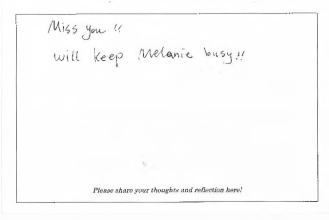 Miss you !!
will keep Melanie busy!!
Please share your thoughts and reflection here!